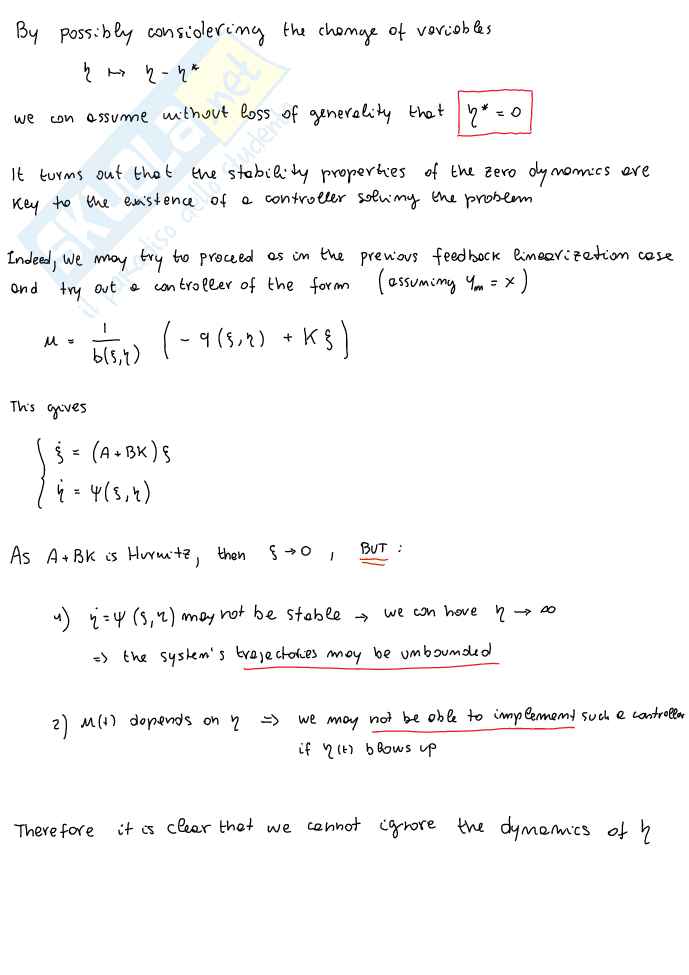 By possibly considering the change of variables
η ↦ η - η*
we can assume without loss of generality that η* = 0
It turns out that the stability properties of the zero dynamics are
key to the existence of a controller solving the problem
Indeed, we may try to proceed as in the previous feedback linearization case
and try out a controller of the form (assuming y_m = x)
u = 1/b(ξ,η) (- q(ξ,η) + Kξ)
This gives
{ ξ̇ = (A+BK)ξ
η̇ = ψ(ξ,η)
As A+BK is Hurwitz, then ξ → 0 , BUT :
1) η̇ = ψ(ξ,η) may not be stable → we can have η → ∞
=> the system's trajectories may be unbounded
2) u(t) depends on η => we may not be able to implement such a controller
if η(t) blows up
Therefore it is clear that we cannot ignore the dynamics of η
SKUOLA.net
il paradiso dello studente